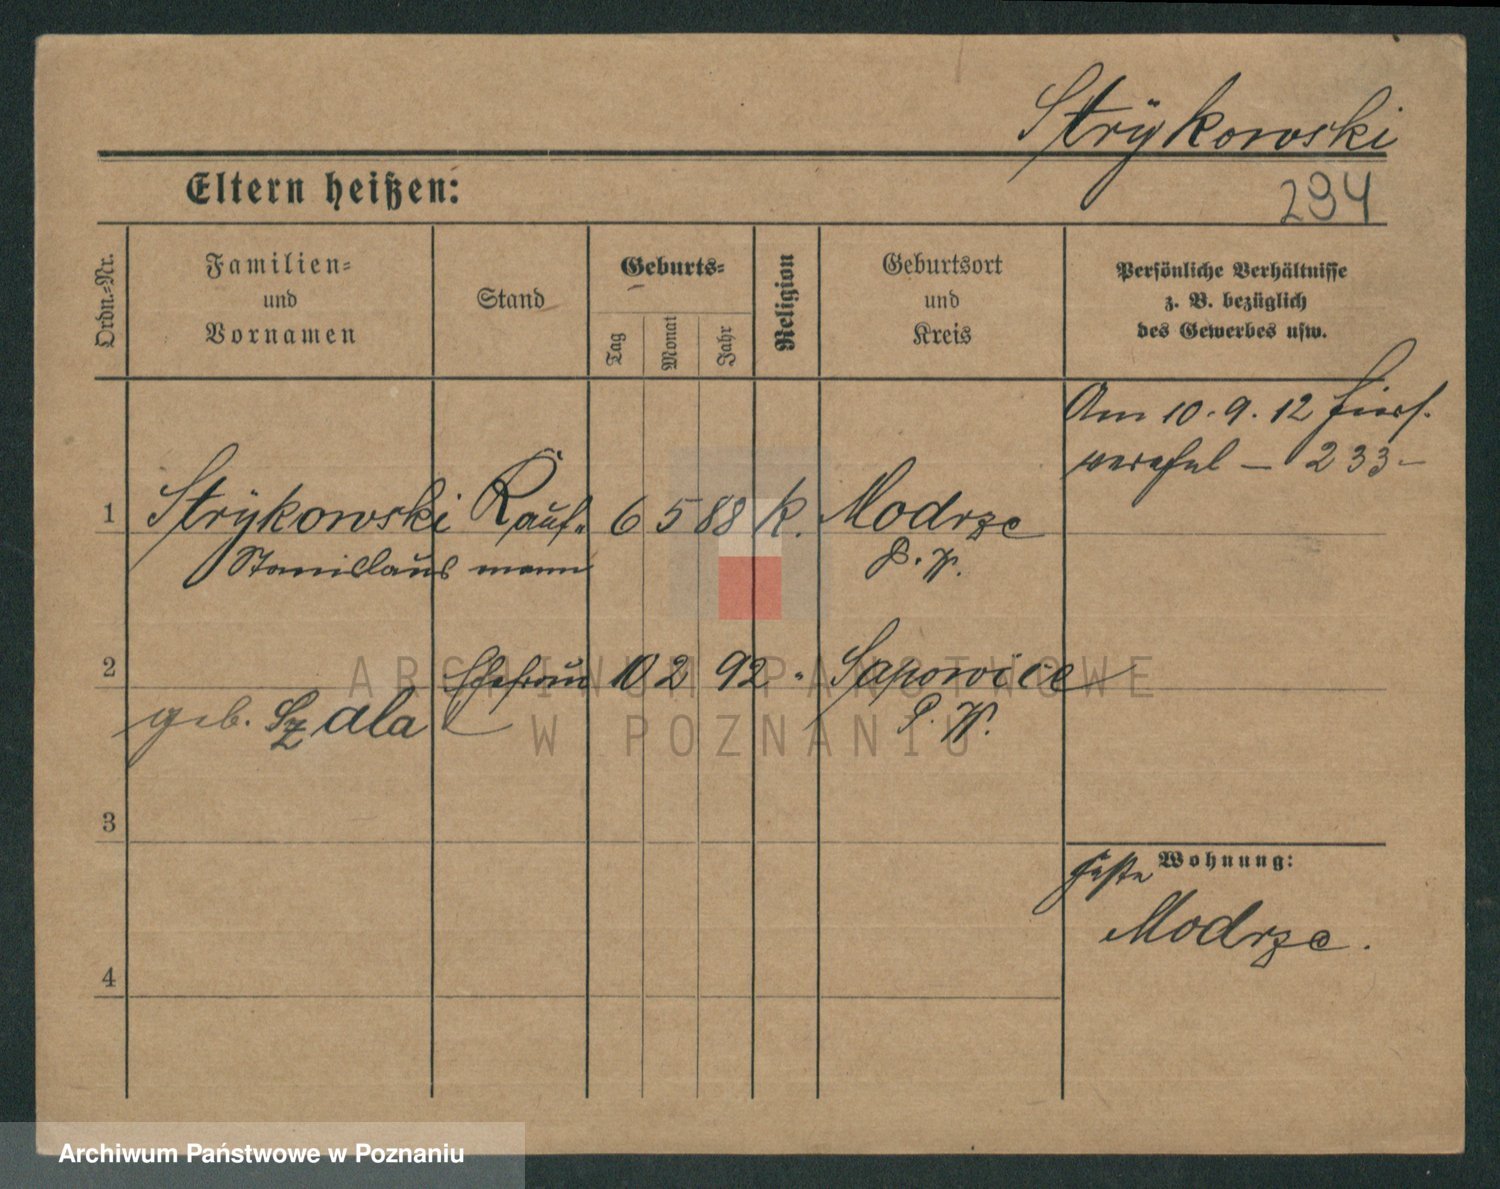 Strÿkowski
Eltern heißen:
294
Ordn.-Nr.
Familien-
und
Vornamen
Stand
Geburts-
Tag
Monat
Jahr
Religion
Geburtsort
und
Kreis
Persönliche Verhältnisse
z. B. bezüglich
des Gewerbes usw.
Am 10.9.12 hier
233-
1 Strÿkowski Kauf- 6 5 88 k. Modrze
Stanislaus mann P. W.
2 Ehefrau 10 2 92 " Sapowice
geb. Szala P. W.
3
Wohnung:
Modrze.
4
ARCHIWUM PAŃSTWOWE
W POZNANIU
Archiwum Państwowe w Poznaniu